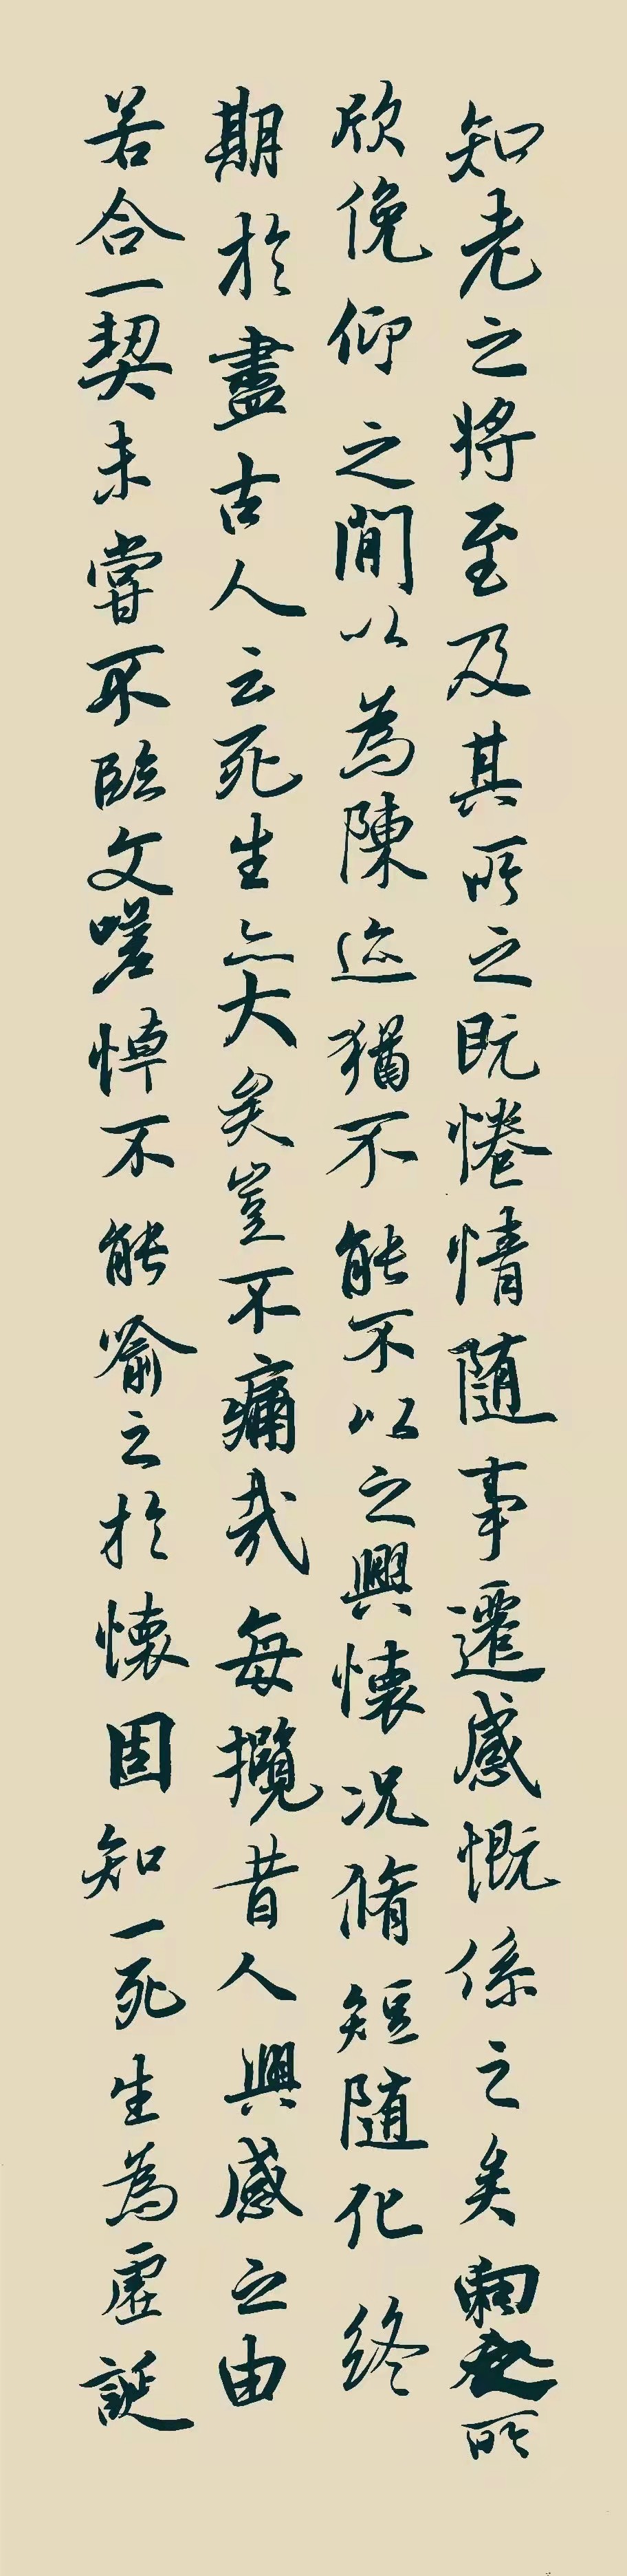 知老之將至及其所之既惓情隨事遷感慨係之矣向之所
欣俛仰之閒以為陳迹猶不能不以之興懷况脩短隨化終
期於盡古人云死生亦大矣豈不痛哉每攬昔人興感之由
若合一契未嘗不臨文嗟悼不能喻之於懷固知一死生為虛誕